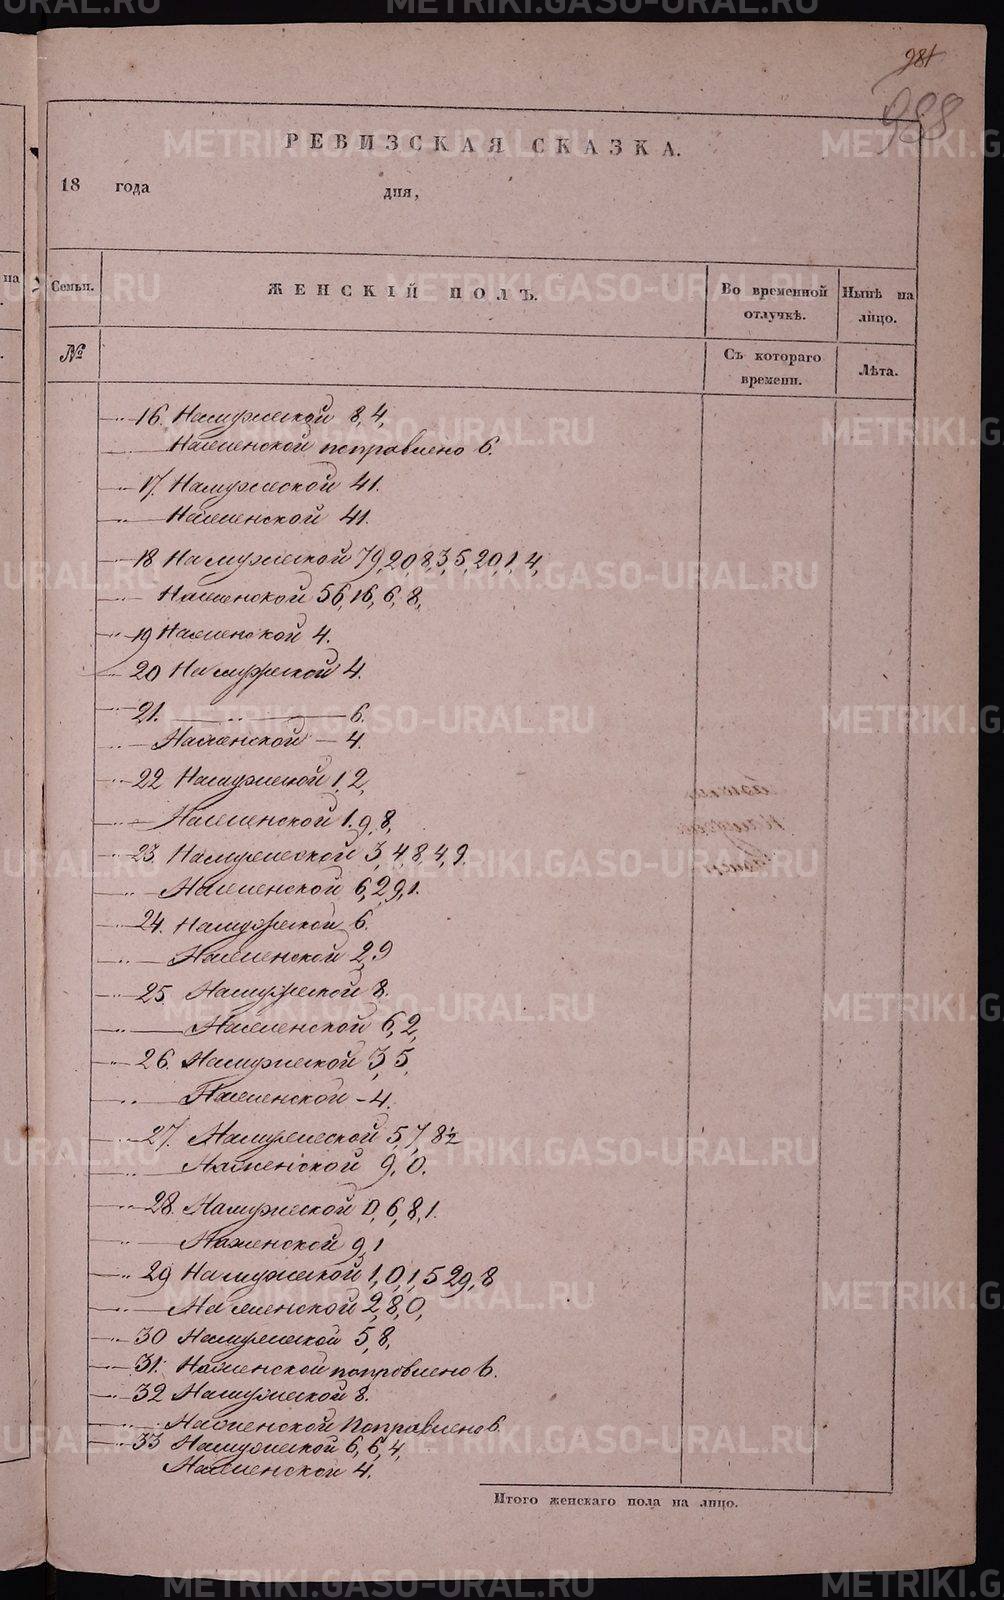 981
988
РЕВИЗСКАЯ СКАЗКА.
18 года дня,
Семьи. ЖЕНСКІЙ ПОЛЪ. Во временной отлучкѣ. Нынѣ на лицо.
№ Съ котораго времени. Лѣта.
16. На мужеской 8, 4,
На женской поправлено 6.
17. На мужеской 41.
На женской 41.
18 На мужеской 79, 20, 8, 3, 5, 20, 1, 4,
На женской 56, 16, 6, 8,
19 На женской 4.
20 На мужеской 4.
21. — „ — 6.
На женской — 4.
22 На мужеской 1, 2,
На женской 1. 9, 8,
23. На мужеской 3, 4, 8, 4, 9.
На женской 6, 29, 1.
24. На мужеской 6.
На женской 2, 9
25. На мужеской 8.
На женской 6, 2,
26. На мужеской 3, 5,
На женской - 4.
27. На мужеской 5, 7, 8½
На женской 9, 0.
28. На мужеской 0, 6, 8, 1.
На женской 9, 1
29 На мужеской 1, 0, 1, 5 29, 8
На женской 2, 8, 0,
30 На мужеской 5, 8,
31. На женской поправлено 6.
32 На мужеской 8.
На женской поправлено 6.
33 На мужеской 6, 6, 4,
На женской 4.
Итого женскаго пола на лицо.
METRIKI.GASO-URAL.RU